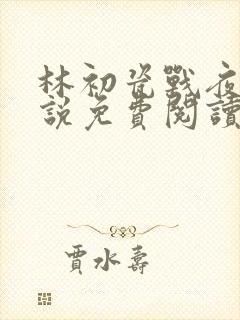 林初瓷戰夜
說免費閱讀
賈水壽